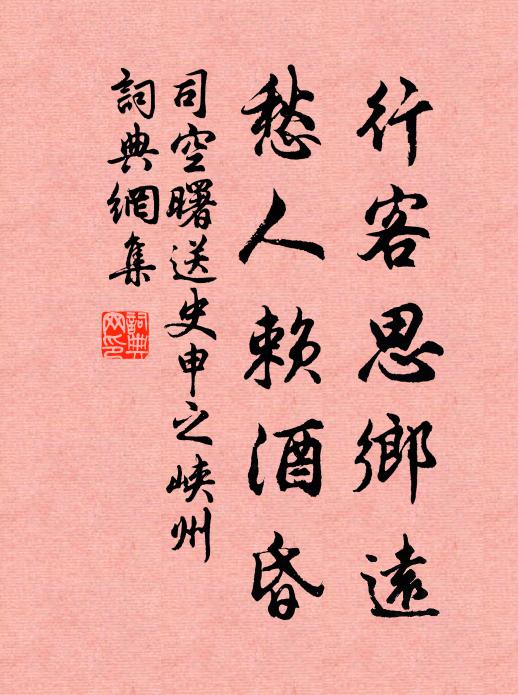 行客思鄉遠
愁人賴酒昏
司空曙送史申之峽州
詞典網集
詞典網印